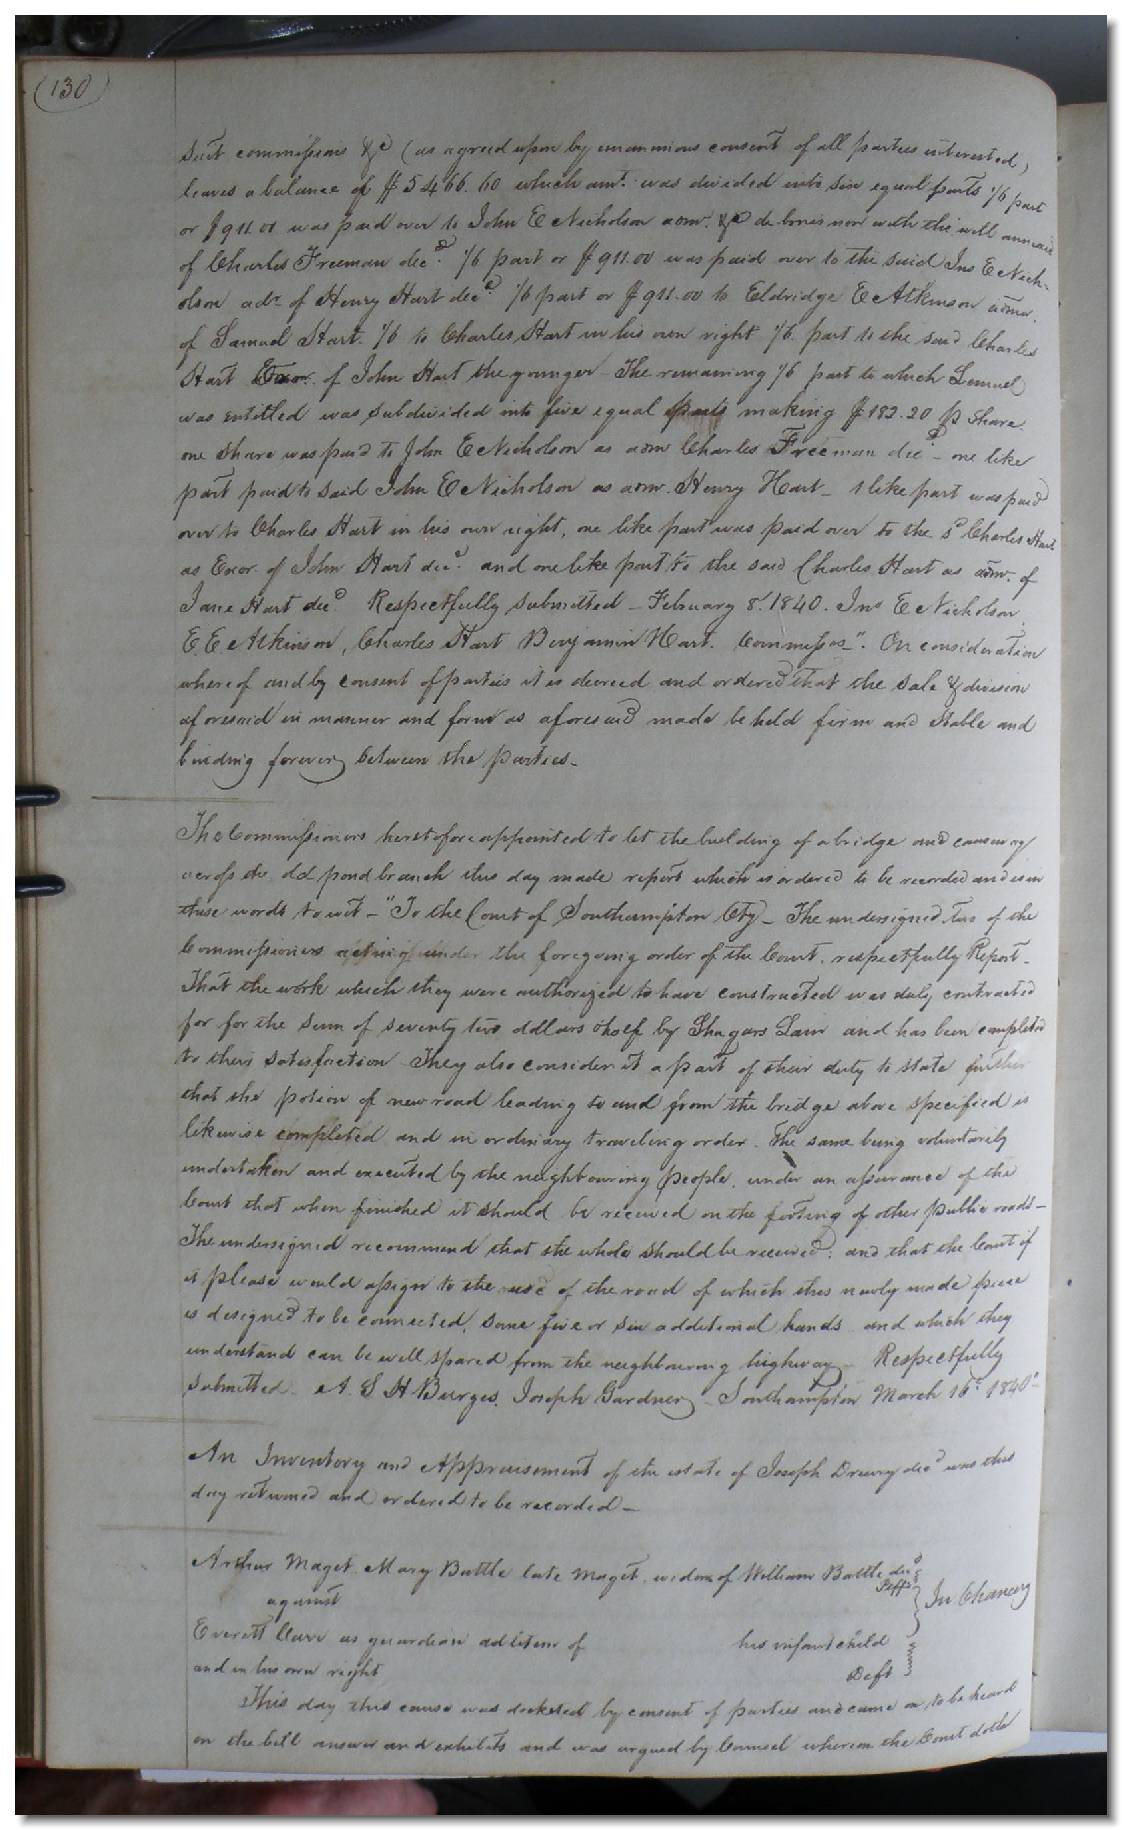 (130)
suit commissions &c (as agreed upon by unanimous consent of all parties interested)
leaves a balance of $5466.60 which amt. was divided into six equal parts 1/6 part
or $911.00 was paid over to John E Nicholson adm. &c de bonis non with the will annexed
of Charles Freeman decd. 1/6 part or $911.00 was paid over to the said Jno E Nich-
olson adr. of Henry Hart decd. 1/6 part or $911.00 to Eldridge E Atkinson admr.
of Samuel Hart. 1/6 to Charles Hart in his own right 1/6 part to the said Charles
Hart Exor. of John Hart the younger - The remaining 1/6 part to which Lemuel
was entitled was subdivided into five equal parts making $182.20 p share.
one share was paid to John E Nicholson as adm Charles Freeman decd - one like
part paid to said John E Nicholson as adm. Henry Hart - 1 like part was paid
over to Charles Hart in his own right, one like part was paid over to the sd Charles Hart
as Exor. of John Hart decd. and one like part to the said Charles Hart as adm. of
Jane Hart decd. Respectfully submitted - February 8. 1840. Jno E Nicholson
E. E. Atkinson, Charles Hart Benjamin Hart. Commissrs". On consideration
whereof and by consent of parties it is decreed and ordered that the sale & division
aforesaid in manner and form as aforesaid made be held firm and stable and
binding forever between the parties -
The Commissioners heretofore appointed to let the building of a bridge and causeway
across the old pond branch this day made report which is ordered to be recorded and is in
these words to wit - "To the Court of Southampton Cty - The undersigned two of the
Commissioners acting under the foregoing order of the Court, respectfully Report -
That the work which they were authorized to have constructed was duly contracted
for for the sum of seventy two dollars by and has been completed
to their satisfaction They also consider it a part of their duty to state further
that the potion of new road leading to and from the bridge above specified is
likewise completed and in ordinary traveling order. The same being voluntarily
undertaken and executed by the neighbouring people, under an assurance of the
Court that when finished it should be received on the footing of other public roads -
The undersigned recommend that the whole should be received; and that the Court if
it please would assign to the use of the road of which this newly made piece
is designed to be connected, some five or six additional hands and which they
understand can be well spared from the neighbouring highway - Respectfully
submitted - A. S H Burges, Joseph Gardner - Southampton March 16th 1840"-
An Inventory and Appraisement of the estate of Joseph Drewry decd was this
day returned and ordered to be recorded -
Arthur Maget Mary Battle late Maget, widow of William Battle decd
Plffs
against
In Chancery
Everett as guardian adlitem of his infant child
and in his own right Deft
This day this cause was docketed by consent of parties and came on to be heard
on the bill answer and exhibits and was argued by Counsel whereon the Court doth